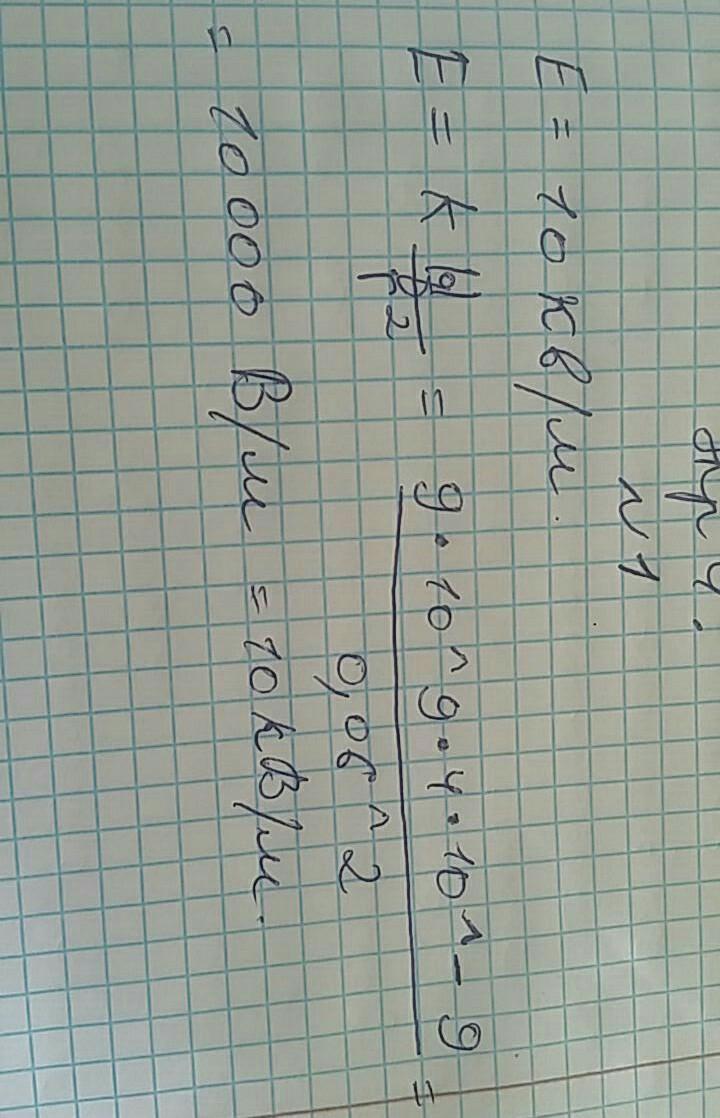 Упр 4.
№1
E = 10 кВ/м.
E = k |q|/r2 = 9·10^9·4·10^-9 / 0,06^2 =
= 10000 В/м = 10 кВ/м.